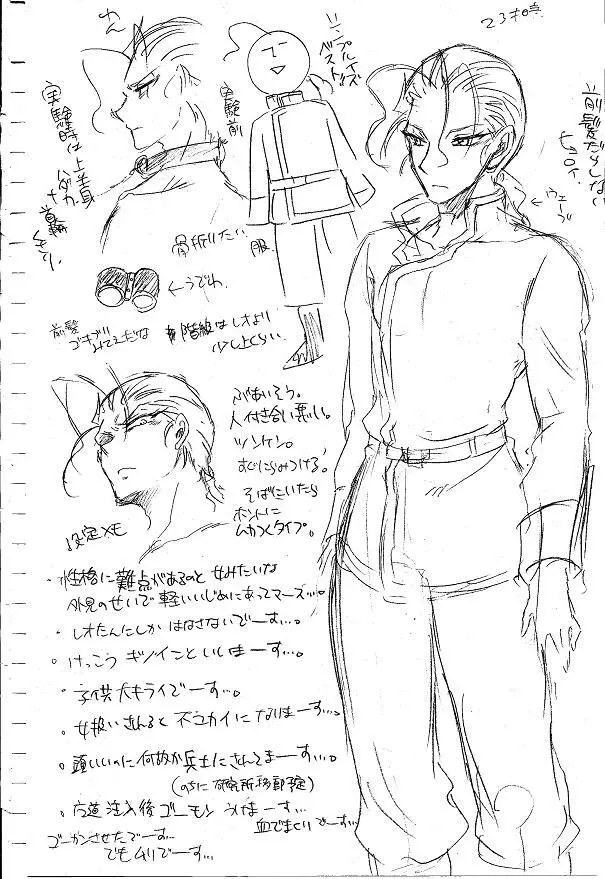 23才時点
前髪だらしない
ウェーブ
実験前
シンプルイズ
ベスト
実験時は上半身
ハダカ
首輪
骨折りたい
服
←うでわ
前髪
ゴキブリ
みてえだな
階級はレオより
少し上くらい
ぶあいそう。
人付き合い悪い。
ツンケン。
すぐにらみつける。
そばにいたら
ホントに
ムカつくタイプ。
設定メモ
・性格に難点があるのと女みたいな
外見のせいで軽いいじめにあってマーズ…。
・レオたんにしかはなさないでーす…。
・けっこう
といいまーす…。
・子供大キライでーす…。
・女扱いされると不ユカイになりまーす…。
・頭いいのに何故か兵士にされてまーす…。
(のちに研究所移動予定)
注入後ゴーモンうけまーす…
血でまくりでーす…
ゴーカンさせたでーす…
でもムリでーす…